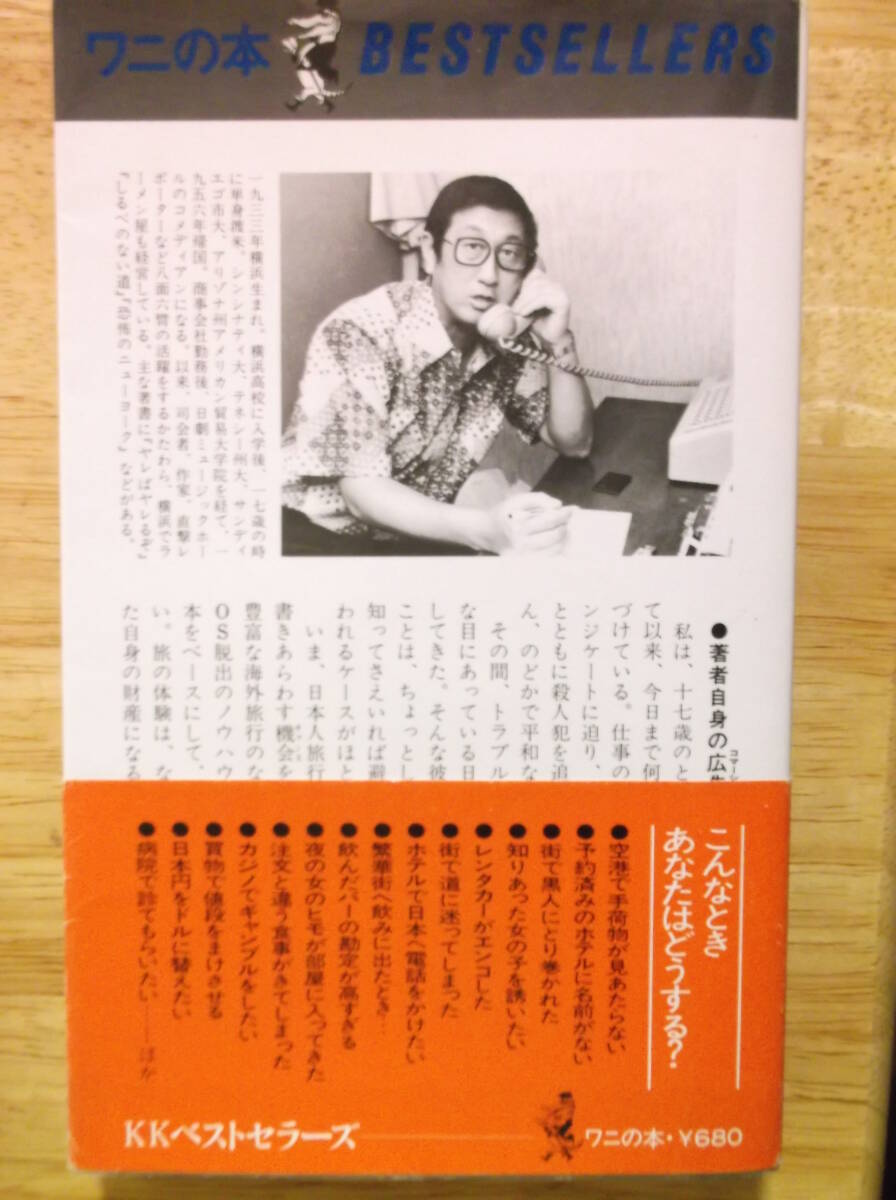 ワニの本 BESTSELLERS
一九三三年横浜生まれ。横浜高校に入学後、一七歳の時
に単身渡米、シンシナティ大、テネシー州大、サンディ
エゴ市大、アリゾナ州アメリカン貿易大学院を経て、一
九五六年帰国。商事会社勤務後、日劇ミュージックホー
ルのコメディアンになる。以来、司会者、作家、直撃レ
ポーターなど八面六臂の活躍をするかたわら、横浜でラ
ーメン屋も経営している。主な著書に『ヤレばヤレるぞ』
『しるべのない道』『恐怖のニューヨーク』などがある。
●著者自身の広告
私は、十七歳のと
て以来、今日まで何
づけている。仕事の
ンジケートに迫り、
とともに殺人犯を追
ん、のどかで平和な
その間、トラブル
な目にあっている日
してきた。そんな彼
ことは、ちょっとし
知ってさえいれば避
われるケースがほと
いま、日本人旅行
書きあらわす機会を
豊富な海外旅行のな
OS脱出のノウハウ
本をベースにして、
い。旅の体験は、な
た自身の財産になる
こんなとき
あなたはどうする?
●空港で手荷物が見あたらない
●予約済みのホテルに名前がない
●街で黒人にとり巻かれた
●知りあった女の子を誘いたい
●レンタカーがエンコした
●街で道に迷ってしまった
●ホテルで日本へ電話をかけたい
●繁華街へ飲みに出たとき…
●飲んだバーの勘定が高すぎる
●夜の女のヒモが部屋に入ってきた
●注文と違う食事がきてしまった
●カジノでギャンブルをしたい
●買物で値段をまけさせる
●日本円をドルに替えたい
●病院で診てもらいたい——ほか
KKベストセラーズ
ワニの本・¥680